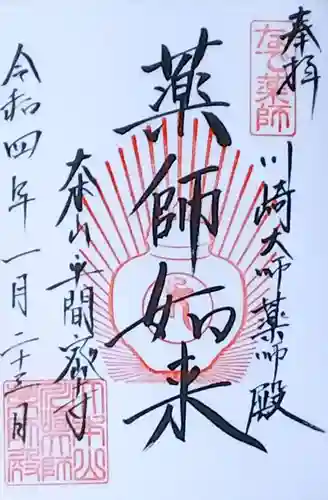 奉拝
なで薬師
川崎大師薬師殿
薬師如来
大本山平間寺
令和四年一月二十三日